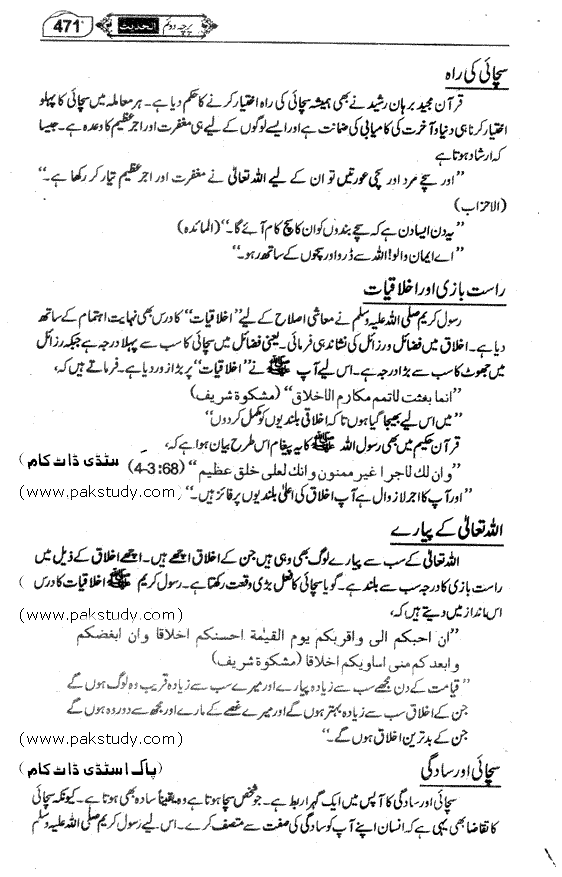 471 الحدیث پرچہ دوئم
سچائی کی راہ
قرآن مجید برہان رشید نے بھی ہمیشہ سچائی کی راہ اختیار کرنے کا حکم دیا ہے۔ ہر معاملہ میں سچائی کا پہلو
اختیار کرنا ہی دنیا و آخرت کی کامیابی کی ضمانت ہے اور ایسے لوگوں کے لیے ہی مغفرت اور اجر عظیم کا وعدہ ہے۔ جیسا
کہ ارشاد ہوتا ہے
’’اور سچے مرد اور سچی عورتیں تو ان کے لیے اللہ تعالیٰ نے مغفرت اور اجر عظیم تیار کر رکھا ہے۔‘‘
(الاحزاب)
’’یہ دن ایسا دن ہے کہ سچے بندوں کو ان کا سچ کام آئے گا۔‘‘ (المائدہ)
’’اے ایمان والو! اللہ سے ڈرو اور سچوں کے ساتھ رہو۔‘‘
راست بازی اور اخلاقیات
رسول کریم صلی اللہ علیہ وسلم نے معاشی اصلاح کے لیے ’’اخلاقیات‘‘ کا درس بھی نہایت اہتمام کے ساتھ
دیا ہے۔ اخلاق میں فضائل و رزائل کی نشاندہی فرمائی۔ یعنی فضائل میں سچائی کا سب سے پہلا درجہ ہے جبکہ رزائل
میں جھوٹ کا سب سے بڑا درجہ ہے۔ اس لیے آپ ﷺ نے ’’اخلاقیات‘‘ پر بڑا زور دیا ہے۔ فرماتے ہیں کہ،
’’انما بعثت لاتمم مکارم الاخلاق‘‘ (مشکوۃ شریف)
’’میں اس لیے بھیجا گیا ہوں تا کہ اخلاقی بلندیوں کو مکمل کر دوں‘‘
قرآن حکیم میں بھی رسول اللہ ﷺ کا یہ پیغام اس طرح بیان ہوا ہے کہ،
’’وان لک لاجرا غیر ممنون وانک لعلی خلق عظیم‘‘ (4-3:68) سٹڈی ڈاٹ کام )
’’اور آپ کا اجر لازوال ہے آپ اخلاق کی اعلیٰ بلندیوں پر فائز ہیں۔‘‘ (www.pakstudy.com)
اللہ تعالیٰ کے پیارے
اللہ تعالیٰ کے سب سے پیارے لوگ بھی وہی ہیں جن کے اخلاق اچھے ہیں۔ اچھے اخلاق کے ذیل میں
راست بازی کا درجہ سب سے بلند ہے۔ گویا سچائی کا فعل بڑی وقعت رکھتا ہے۔ رسول کریم ﷺ اخلاقیات کا درس
اس انداز میں دیتے ہیں کہ، (www.pakstudy.com)
’’ان احبکم الی واقربکم یوم القیٰمة احسنکم اخلاقا وان ابغضکم
وابعدکم منی اساویکم اخلاقا (مشکوۃ شریف)
’’قیامت کے دن مجھے سب سے زیادہ پیارے اور میرے سب سے زیادہ قریب وہ لوگ ہوں گے
جن کے اخلاق سب سے زیادہ بہتر ہوں گے اور میرے غصے کے مارے اور مجھ سے دور وہ ہوں گے
جن کے بدترین اخلاق ہوں گے۔‘‘ (www.pakstudy.com)
سچائی اور سادگی (پاک اسٹڈی ڈاٹ کام)
سچائی اور سادگی کا آپس میں ایک گہرا ربط ہے۔ جو شخص سچا ہوتا ہے وہ یقیناً سادہ بھی ہوتا ہے۔ کیونکہ سچائی
کا تقاضا بھی یہی ہے کہ انسان اپنے آپ کو سادگی کی صفت سے متصف کرے۔ اس لیے رسول کریم صلی اللہ علیہ وسلم